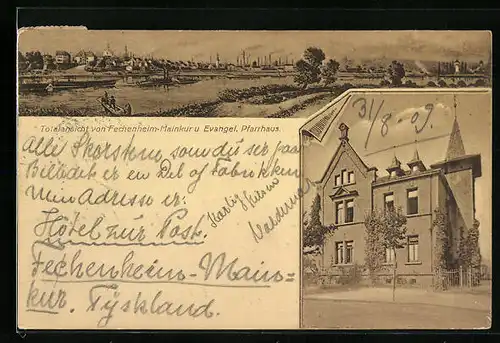 Totalansicht von Fechenheim-Mainkur u Evangel. Pfarrhaus.
31/8-09.
Alli Skorsten, som du ser paa
Billedet er en Del af Fabrikken
Min Adresse er:
Hôtel zur Post.
Fechenheim-Main=
kur. Tyskland.
Hartig Hilsen